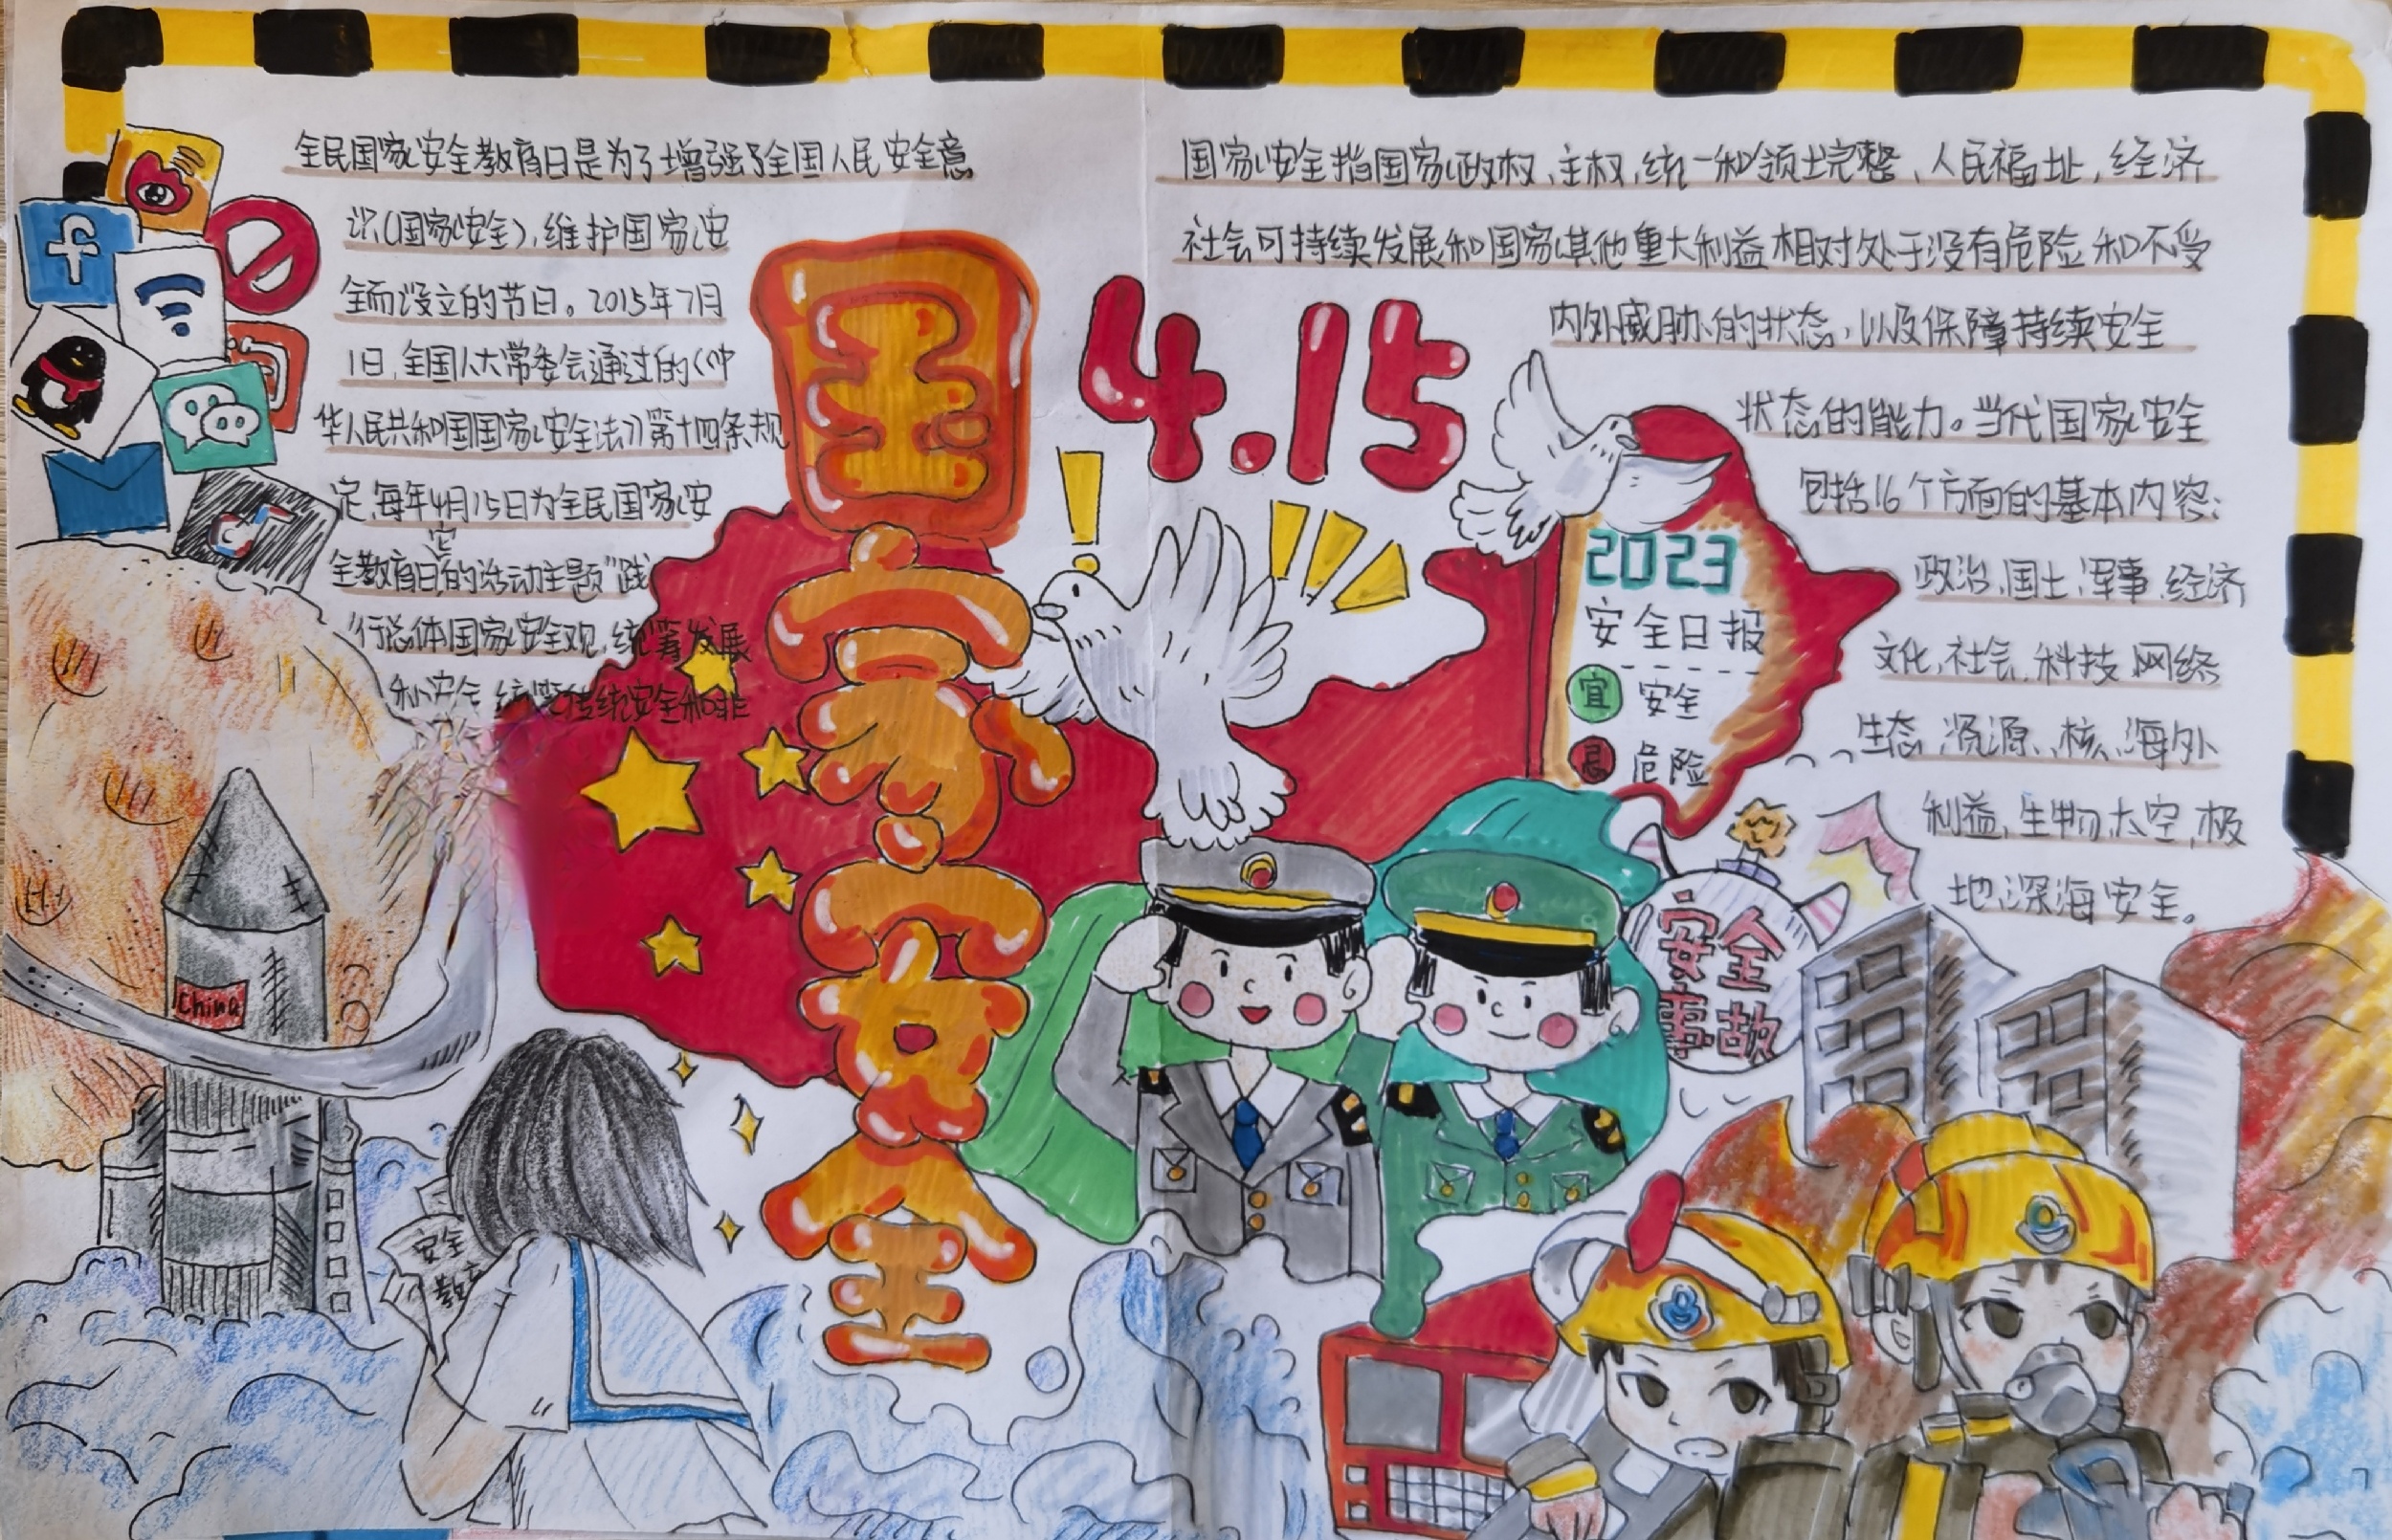 全民国家安全教育日是为了增强了全国人民安全意
识(国家安全),维护国家安
全而设立的节日。2015年7月
1日,全国人大常委会通过的《中
华人民共和国国家安全法》第十四条规
定,每年4月15日为全民国家安
全教育日,的活动主题"践
定
行总体国家安全观,统筹发展
和安全 统筹传统安全和非
国家安全
4.15
国家安全指国家政权、主权,统一和领土完整、人民福址,经济
社会可持续发展和国家其他重大利益相对处于没有危险和不受
内外威胁的状态,以及保障持续安全
状态的能力。当代国家安全
包括16个方面的基本内容:
政治,国土,军事,经济
文化,社会,科技,网络
生态,资源、核、海外
利益,生物,太空,极
地,深海安全。
2023
安全日报
宜 安全
忌 危险
安全
事故
China
安全
教育